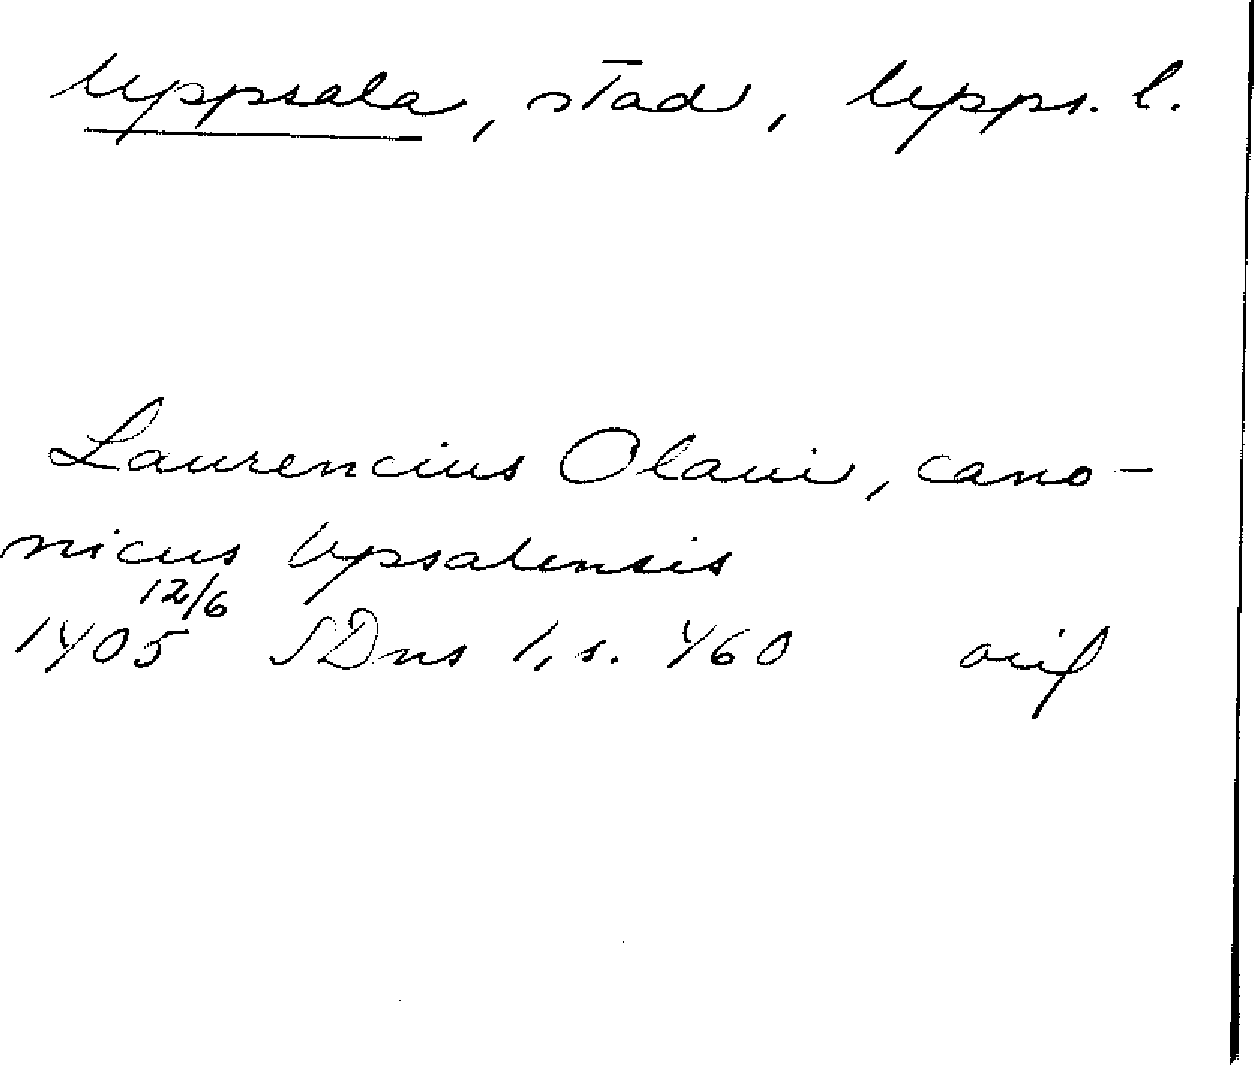 Uppsala, stad, Upps. l.
Laurencius Olaui, cano-
nicus Vpsalensis
12/6
1405 SDns 1, s. 460 orig